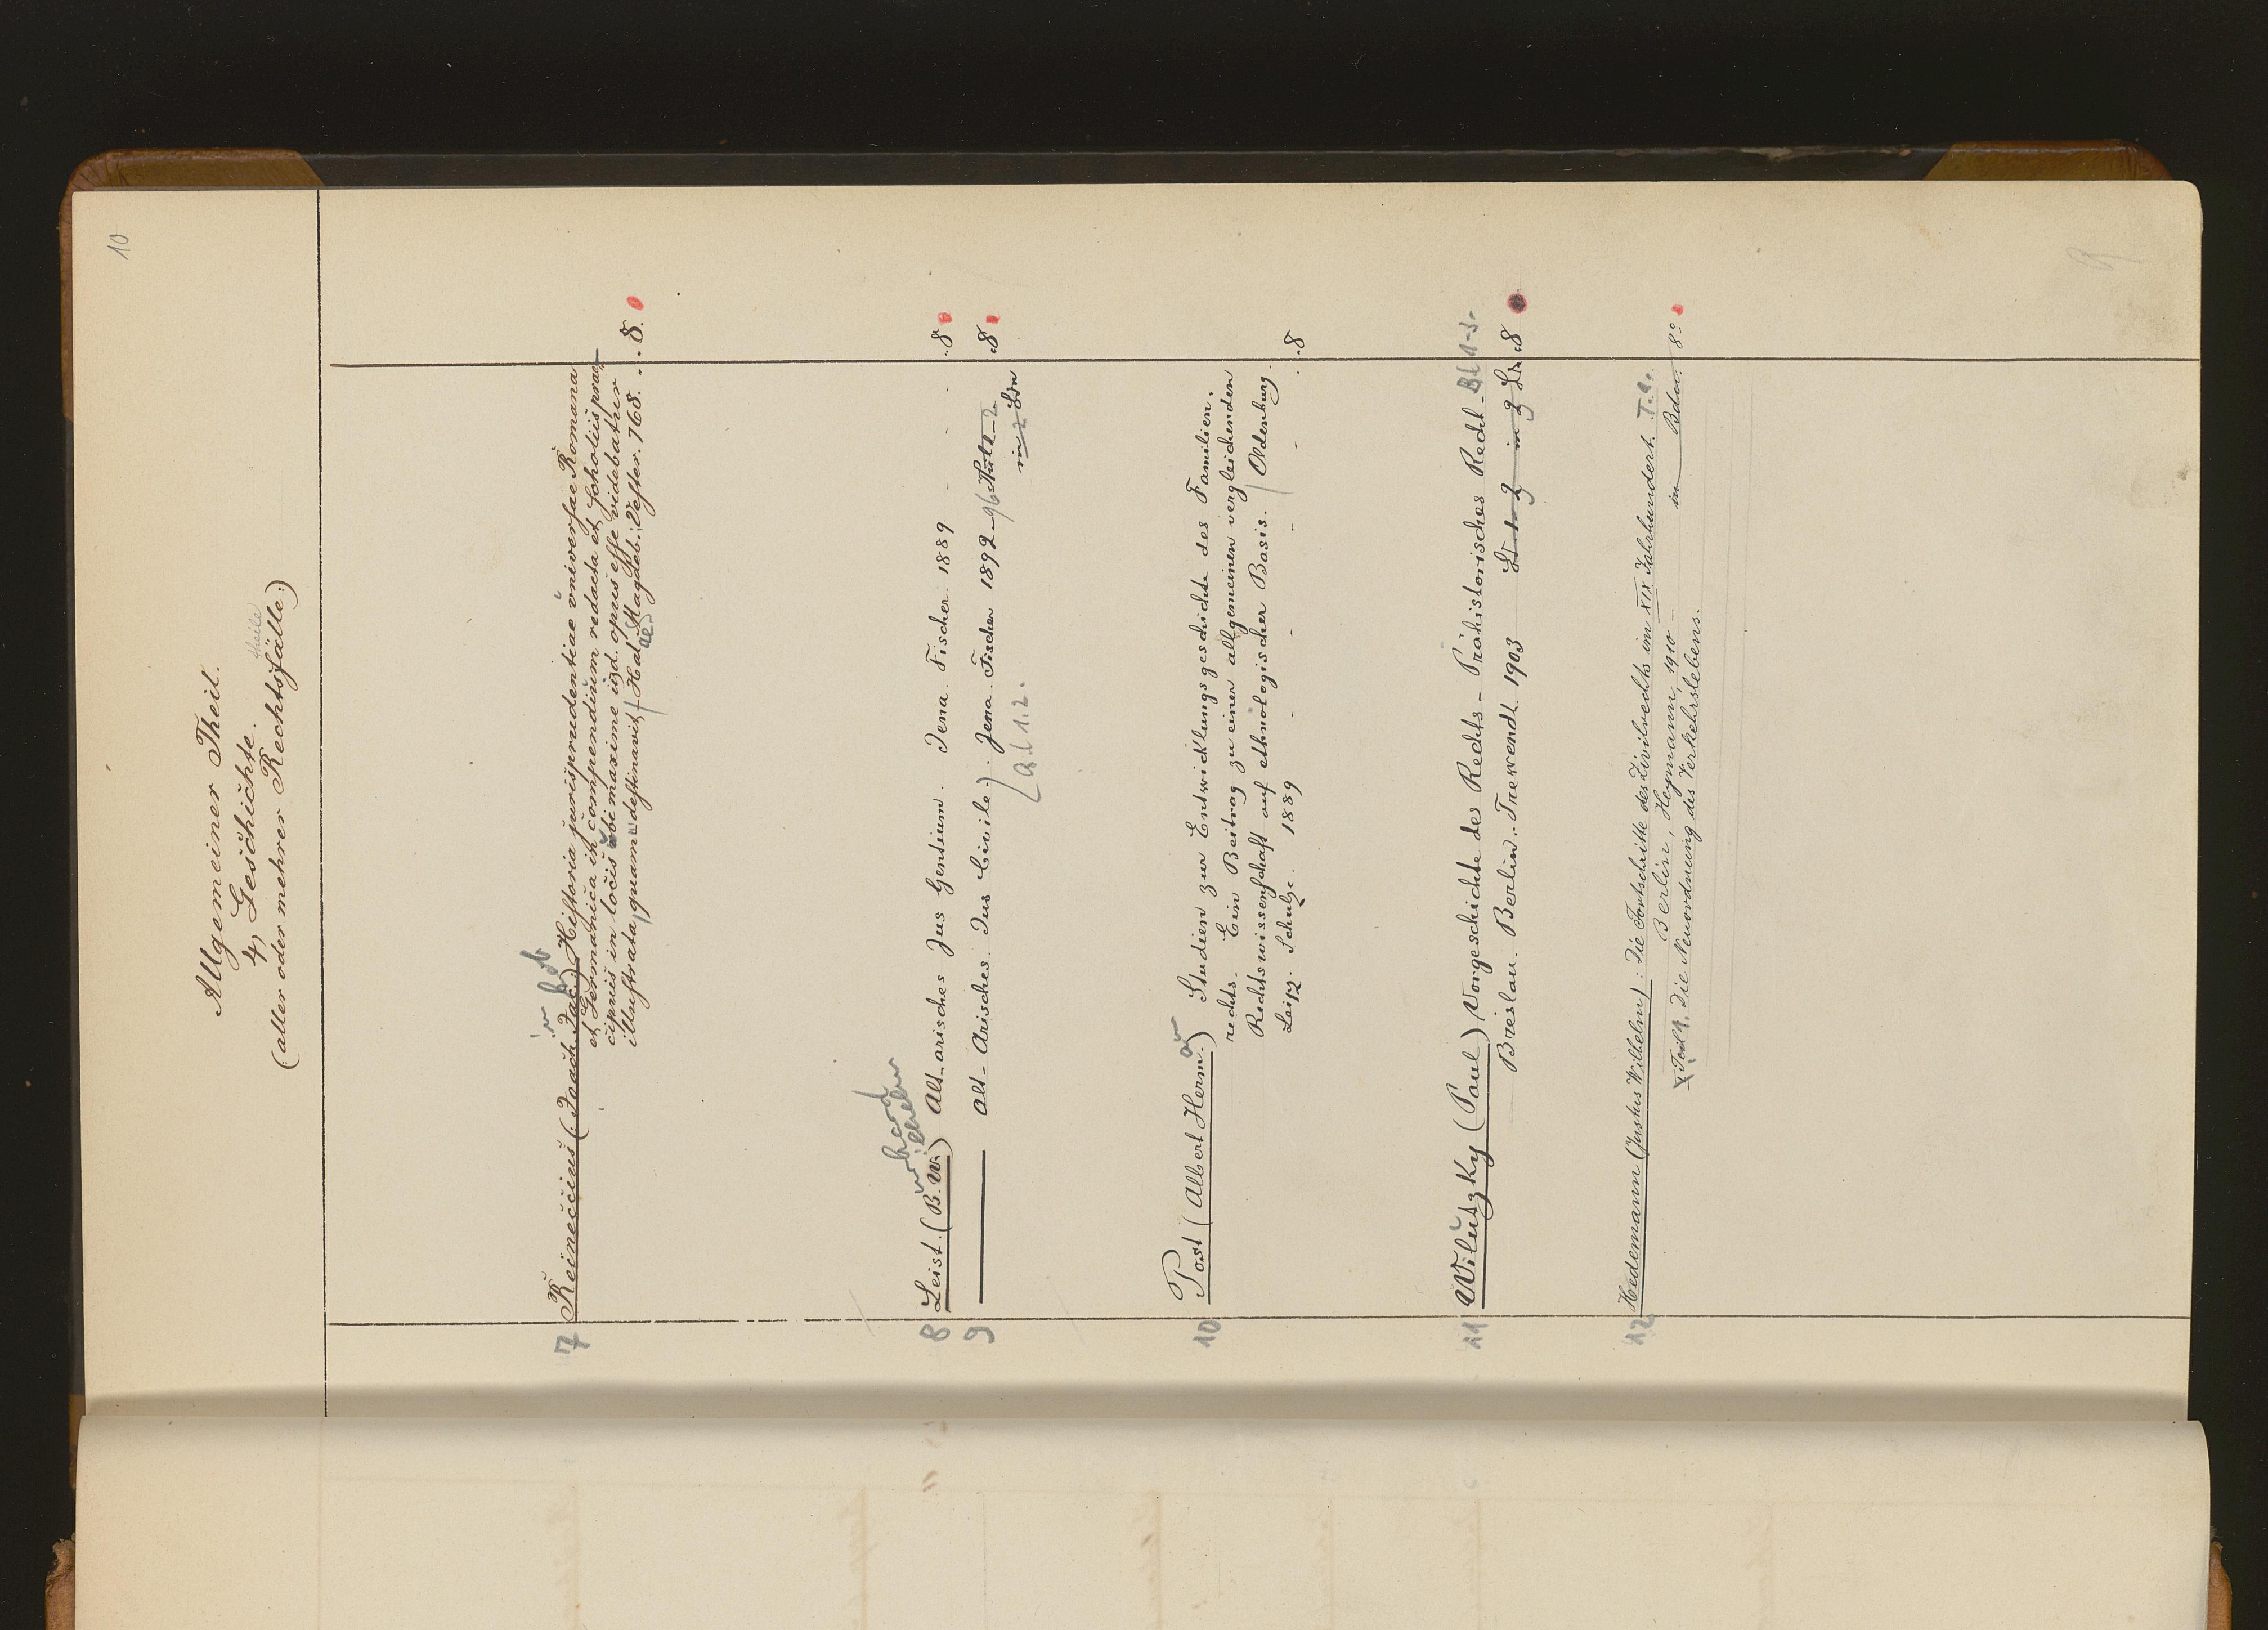 10
Allgemeiner Theil.
4, Geschichte.
theile
(aller oder mehrer Rechtsfälle.)
7 Reineccius (Joach. Jac.) Historia jurisprudentiae vniversae Romana
et Germanica in compendium redacta et scholiis prae-
cipuis in locis ubi maxime iisd. opus esse videbatur
illustrata, quam destinavit. Hal Magdeb.: Vester. 768. - .8.
ae
8 Leist. (B. W.) Alt-arisches Jus Gentium. Jena. Fischer. 1889 - - - .8
9 — Alt-Arisches. Jus Civile. Jena. Fischer 1892-96 Abt 1-2 .8
in 2 Bdn
[Abt 1.2.
10 Post (Albert Herm.) Studien zur Entwicklungsgeschichte des Familien-
rechts. Ein Beitrag zu einer allgemeinen vergleichenden
Rechtswissenschaft auf ethnologischer Basis. Oldenburg.
Leipz. Schulze. 1889 - - - - .8
11 Wilutzky (Paul) Vorgeschichte des Rechts - Prähistorisches Recht - Bd 1-3.
Breslau. Berlin. Trewendt. 1903 Bd 1-3 in 3 Bd .8
12 Hedemann (Justus Wilhelm): Die Fortschritte des Zivilrechts im XIX Jahrhundert. T. 1.
Berlin, Heymann, 1910 - in Bden. 8°
x Teil 1. Die Neuordnung des Verkehrslebens.